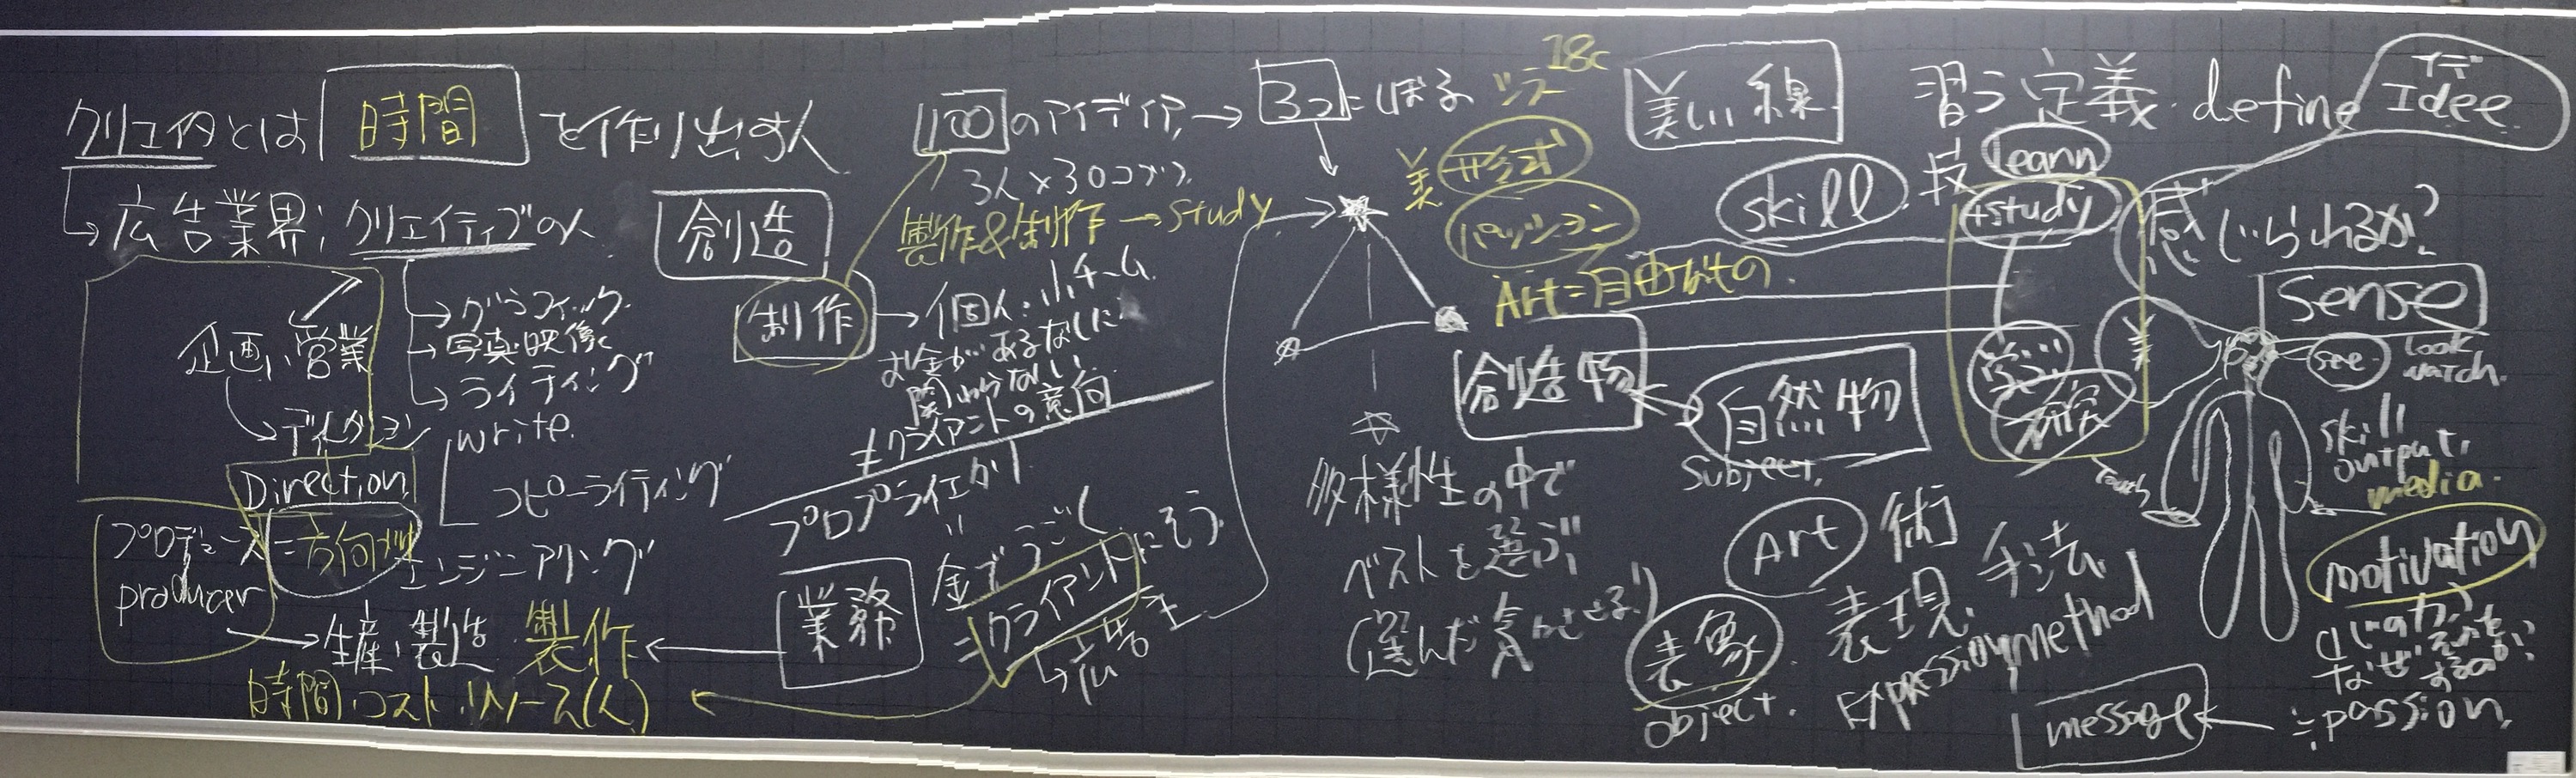 クリエイタとは 時間 を作り出す人
広告業界; クリエイティブの人
企画、営業
ディレクション
Direction
プロデュース=方向性
producer
グラフィック
写真・映像
ライティング
write.
コピーライティング
エンジニアリング
生産、製造 製作
時間・コスト・リソース(人)
100のアイディア→3つにしぼる
3人×30コづつ
製作&制作→study
創造
制作
個人・小チーム
お金があるなしに
関わらない
≠クライアントの意向
プロプライエタリ
金でうごく
=クライアントにそう
広告主
業務
多様性の中で
ベストを選ぶ
(選んだ気にさせる!)
18c
シラー
美 形式
パッション
Art=自由なもの
美しい線
創造物
自然物
subject.
skill
技
習う定義 define
learn
+study
イデ
Idee
感じられるか?
sense
see
look
watch.
美
touch
skill
output,
media.
Art 術 手法
表現.
Expression method
表象
object.
motivation
なぜするのか?
≒passion,
message